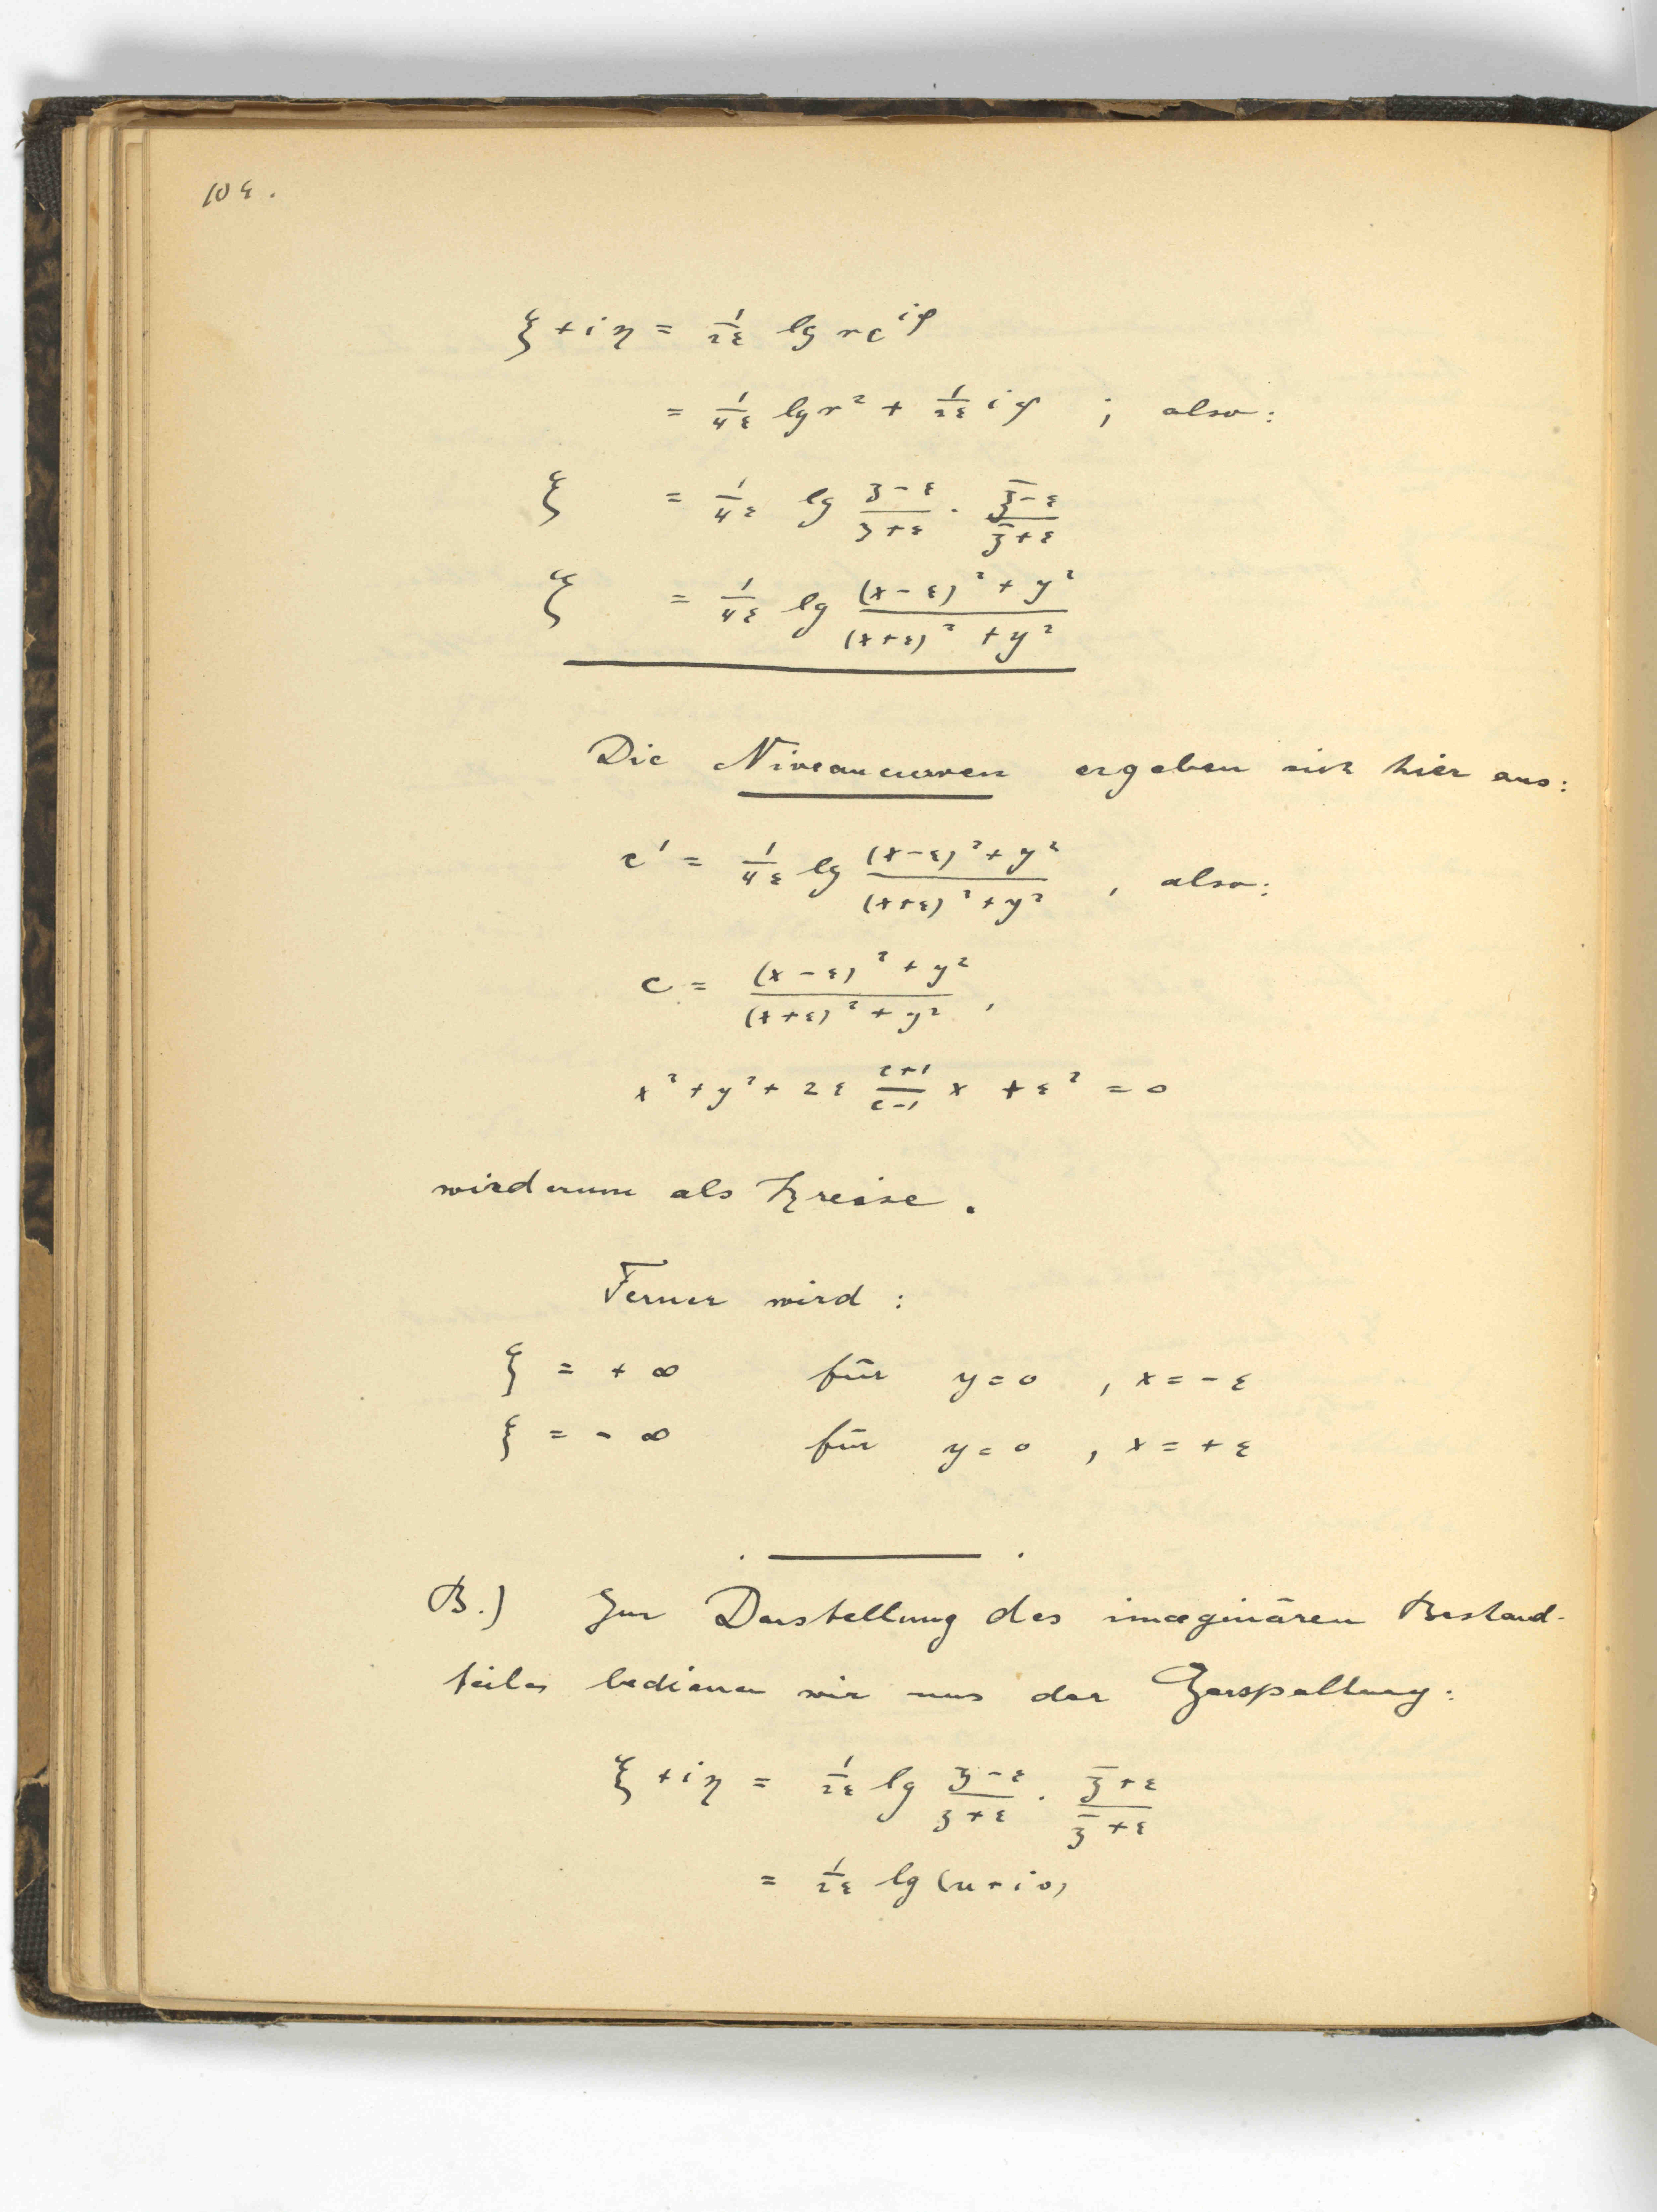 104.
ξ + iη = 1/2ε lg re^{iφ}
= 1/4ε lg r² + 1/2ε iφ ; also:
ξ = 1/4ε lg (z−ε)/(z+ε) · (z̄−ε)/(z̄+ε)
ξ = 1/4ε lg ((x−ε)² + y²)/((x+ε)² + y²)
Die Niveaucurven ergeben sich hier aus:
c' = 1/4ε lg ((x−ε)² + y²)/((x+ε)² + y²) , also:
c = ((x−ε)² + y²)/((x+ε)² + y²) ,
x² + y² + 2ε (c+1)/(c−1) x + ε² = 0
wiederum als Kreise.
Ferner wird :
ξ = + ∞ für y = 0 , x = − ε
ξ = − ∞ für y = 0 , x = + ε
B.) Zur Darstellung des imaginären Bestand-
teiles bedienen wir uns der Zerspaltung:
ξ + iη = 1/2ε lg (z−ε)/(z+ε) · (z̄+ε)/(z̄+ε)
= 1/2ε lg (u + iv)